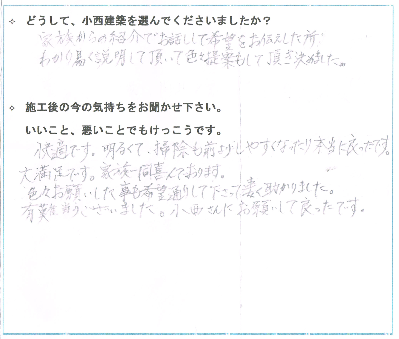 ◇ どうして、小西建築を選んでくださいましたか？
家族からの紹介でお話しして希望をお伝えした所
わかり易く説明して頂いて色々提案もして頂き決めました。
◇ 施工後の今の気持ちをお聞かせ下さい。
いいこと、悪いことでもけっこうです。
快適です。明るくて、掃除も前よりしやすくなったり本当に良かったです。
大満足です。家族一同喜んでおります。
色々お願いした事も希望通りして下さって凄く助かりました。
有難う御ございました。小西さんにお願いして良かったです。